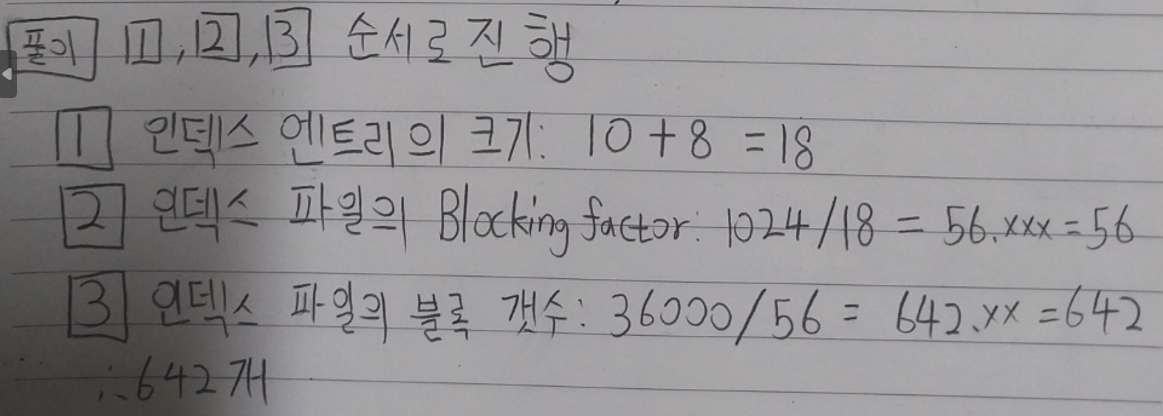 풀이 1, 2, 3 순서로 진행
1 인덱스 엔트리의 크기: 10+8 =18
2 인덱스 파일의 Blocking factor: 1024/18 = 56.xxx=56
3 인덱스 파일의 블록 갯수: 36000/56 = 642.xx =642
∴642개